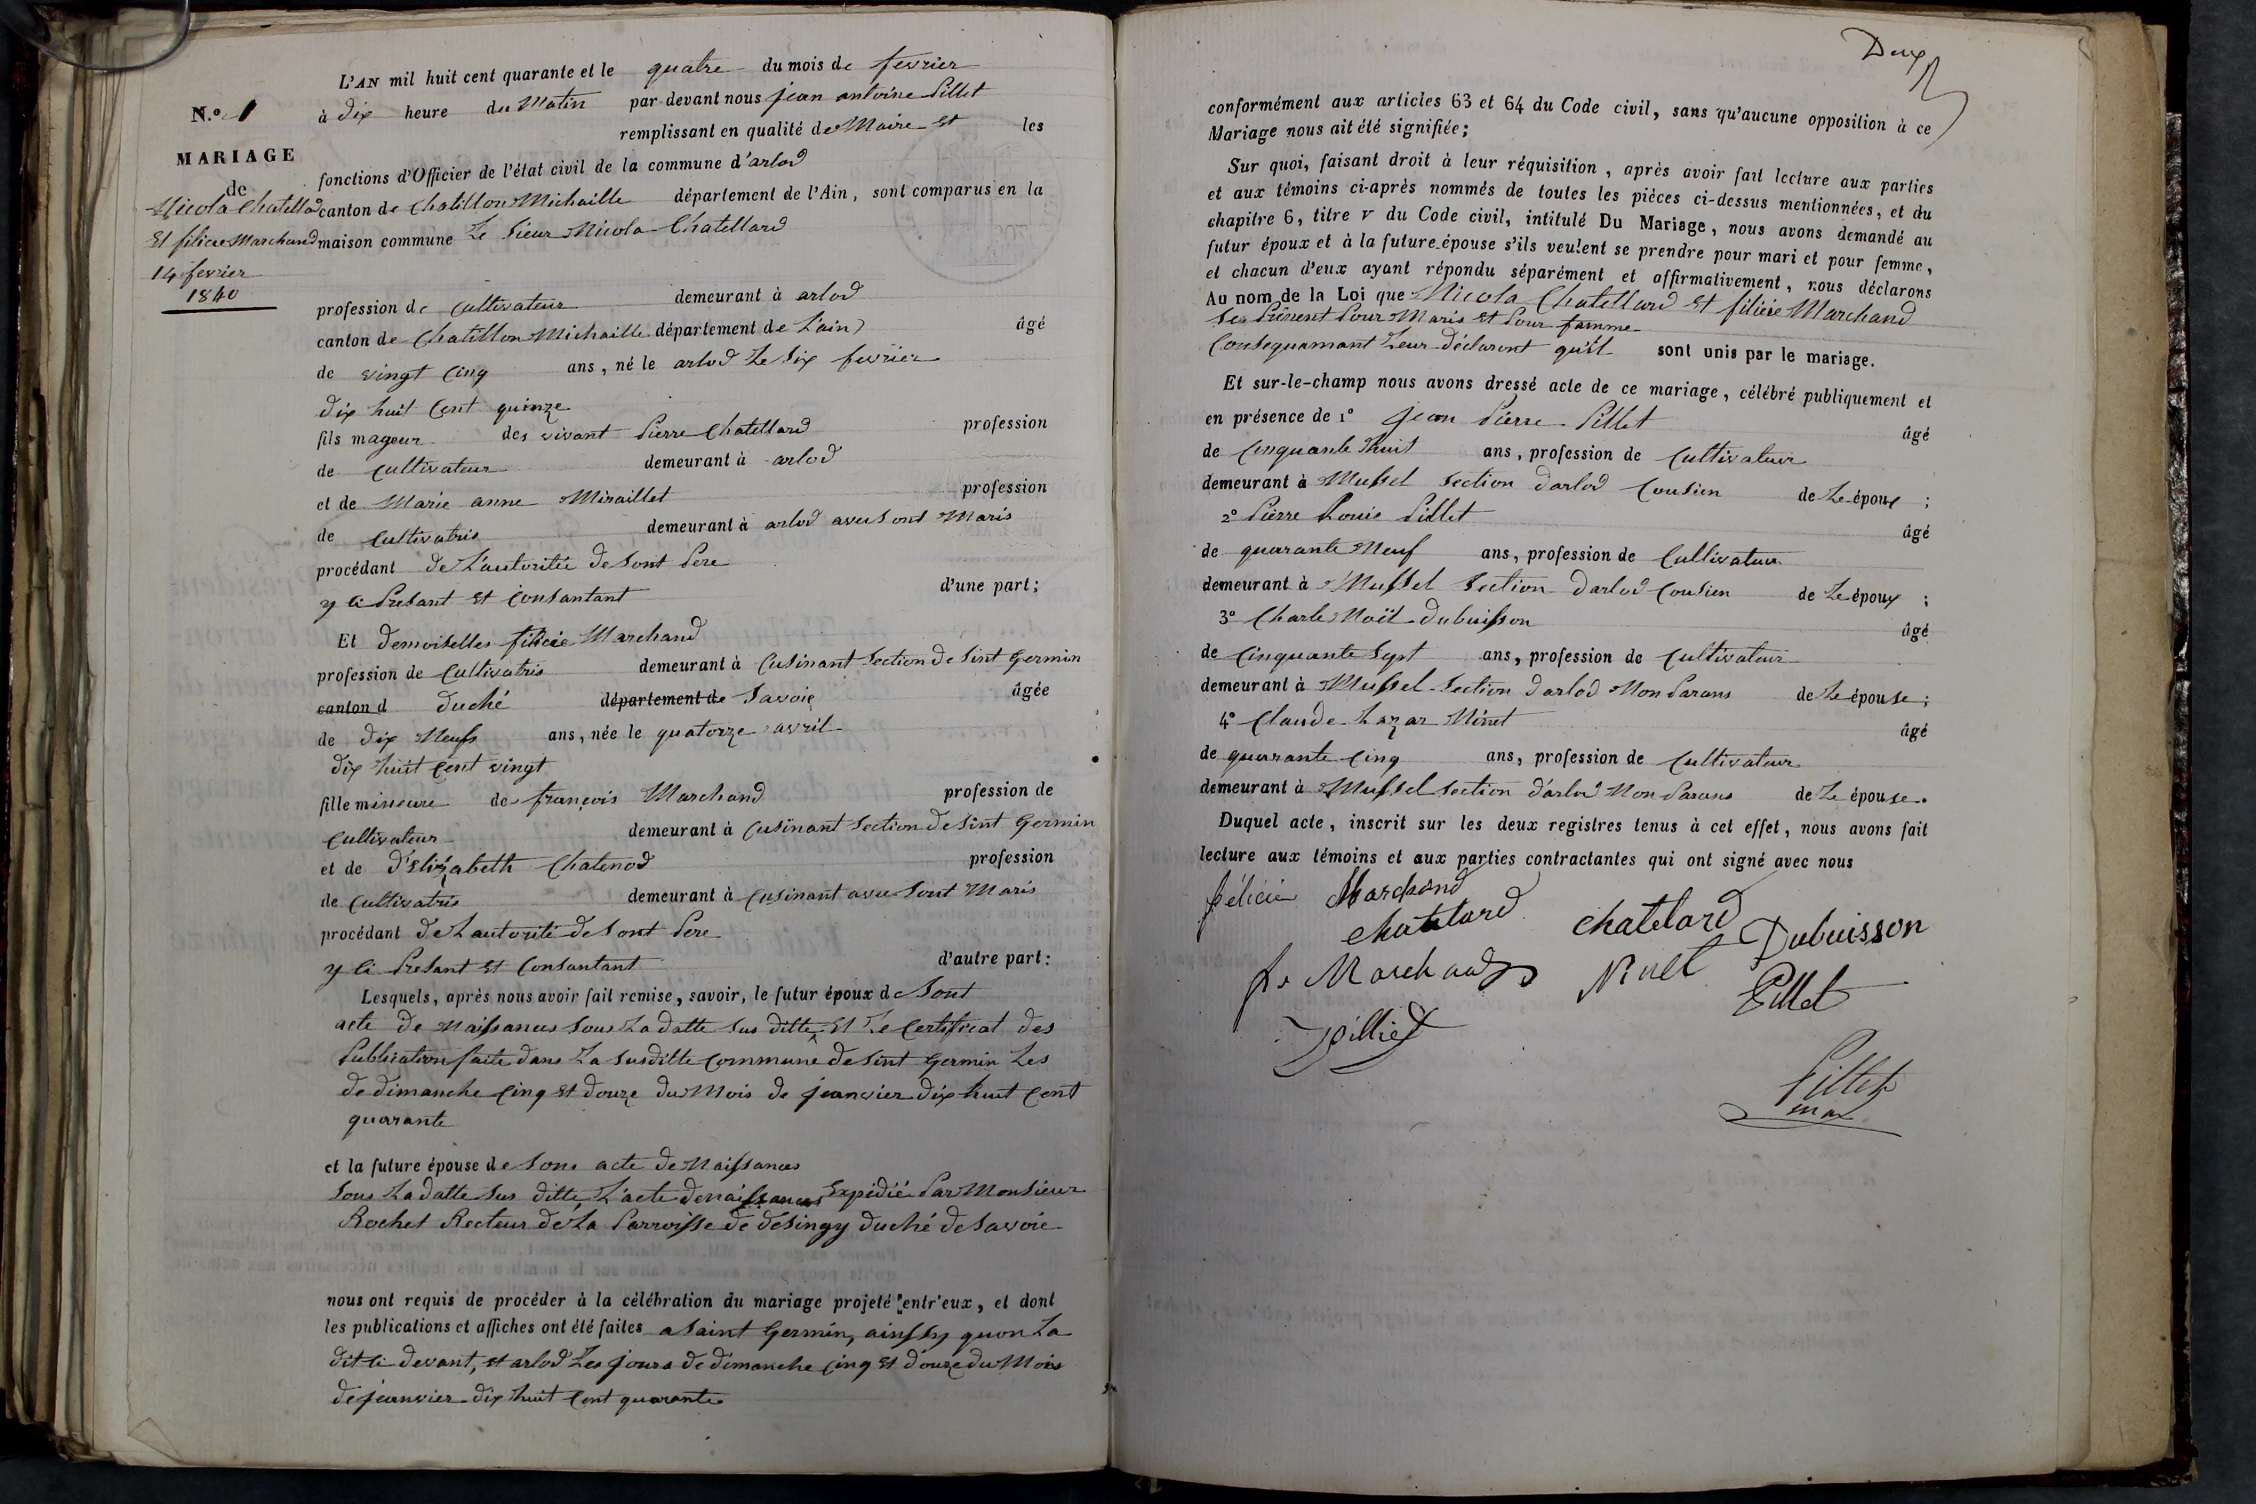 L'AN mil huit cent quarante et le quatre du mois de fevrier
N.º 1
à dix heure du Matin par devant nous jean antoine Pillet
remplissant en qualité de Maire Et les
MARIAGE
fonctions d'Officier de l'état civil de la commune d'arlod
de
Nicola Chatellard
canton de Chatillon Michaille département de l'Ain, sont comparus en la
Et filicie Marchand
maison commune Le Sieur Nicola Chatellard
14 fevrier
1840
profession de Cultivateur demeurant à arlod
canton de Chatillon Michaille département de L'ain âgé
de vingt Cinq ans, né le arlod Le Six fevrier
dix huit Cent quinze
fils mageur des vivant Pierre Chatellard profession
de Cultivateur demeurant à arlod
et de Marie anne Miraillet profession
de Cultivatris demeurant à arlod avec Sont Maris
procédant de L'autoritée de Sont Pere
y Ci Présant Et Consantant d'une part;
Et Demoiselles filicie Marchand
profession de Cultivatris demeurant à Cusinant Section de Sint Germin
canton d duché département de Savoie âgée
de dix Neufs ans, née le quatorze avril
dix huit Cent vingt
fille mineure de françois Marchand profession de
Cultivateur demeurant à Cusinant Section de Sint Germin
et de d'Elizabeth Chatenod profession
de Cultivatris demeurant à Cusinant avec Sont Maris
procédant de L'autorité de Sont Pere
y Ci Présant Et Consantant d'autre part:
Lesquels, après nous avoir fait remise, savoir, le futur époux de Sont
acte de Naissances Sous La datte Sus ditte Et Le Certificat des
Publication faite dans La Susditte Commune de Sint Germin Les
de dimanche Cinq Et douze du Mois de jeanvier dix huit Cent
quarante
et la future épouse de Sons acte de Naissances
Sous La datte Sus ditte, L'acte denaissances Expédié Par Monsieur
Rochet Recteur de La Parroisse de désingy duché de Savoie
nous ont requis de procéder à la célébration du mariage projeté entr'eux, et dont
les publications et affiches ont été faites a Saint Germin, ainssy quon La
dit Ci devant, Et arlod Les jours de dimanche Cinq Et douze du Mois
de jeanvier dix huit Cent quarante
Deux
conformément aux articles 63 et 64 du Code civil, sans qu'aucune opposition à ce
Mariage nous ait été signifiée;
Sur quoi, faisant droit à leur réquisition, après avoir fait lecture aux parties
et aux témoins ci-après nommés de toutes les pièces ci-dessus mentionnées, et du
chapitre 6, titre v du Code civil, intitulé Du Mariage, nous avons demandé au
futur époux et à la future épouse s'ils veulent se prendre pour mari et pour femme,
et chacun d'eux ayant répondu séparément et affirmativement, nous déclarons
Au nom de la Loi que Nicola Chatellard Et filicie Marchand
Ses Prênent Pour Maris Et Pour famme
Consequamant Leur déclarent qu'il sont unis par le mariage.
Et sur-le-champ nous avons dressé acte de ce mariage, célébré publiquement et
en présence de 1º Jean Pierre Pillet âgé
de Cinquante huit ans, profession de Cultivateur
demeurant à Mussel Section darlod Cousien de Le époux;
2º Pierre Louis Pillet âgé
de quarante Neuf ans, profession de Cultivateur
demeurant à Mussel Section darlod Cousien de Le époux;
3º Charle Noël Dubuisson âgé
de Cinquante Sept ans, profession de Cultivateur
demeurant à Mussel Section darlod Non Parans de Le épouse;
4º Claude Lazar Ninet âgé
de quarante Cinq ans, profession de Cultivateur
demeurant à Mussel Section d'arlod Non Parans de Le épouse.
Duquel acte, inscrit sur les deux registres tenus à cet effet, nous avons fait
lecture aux témoins et aux parties contractantes qui ont signé avec nous
félicie Marchand
Chatelard Chatelard Dubuisson
fs Marchand Ninet Pillet
Pilliet
Pillet
mar